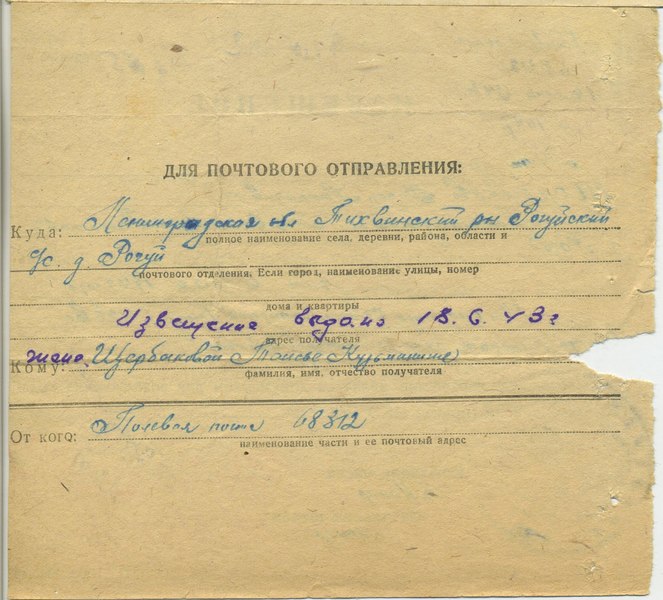 ДЛЯ ПОЧТОВОГО ОТПРАВЛЕНИЯ:
Куда: Ленинградская обл Тихвинский рн Рогуйский
полное наименование села, деревни, района, области и
с/с. д. Рогуй
почтового отделения. Если город, наименование улицы, номер
дома и квартиры
Извещение выдано 18. 6. 43 г
адрес получателя
Кому: жена Щербаковой Таисье Кузьминише
фамилия, имя, отчество получателя
От кого: Полевая почта 68312
наименование части и ее почтовый адрес